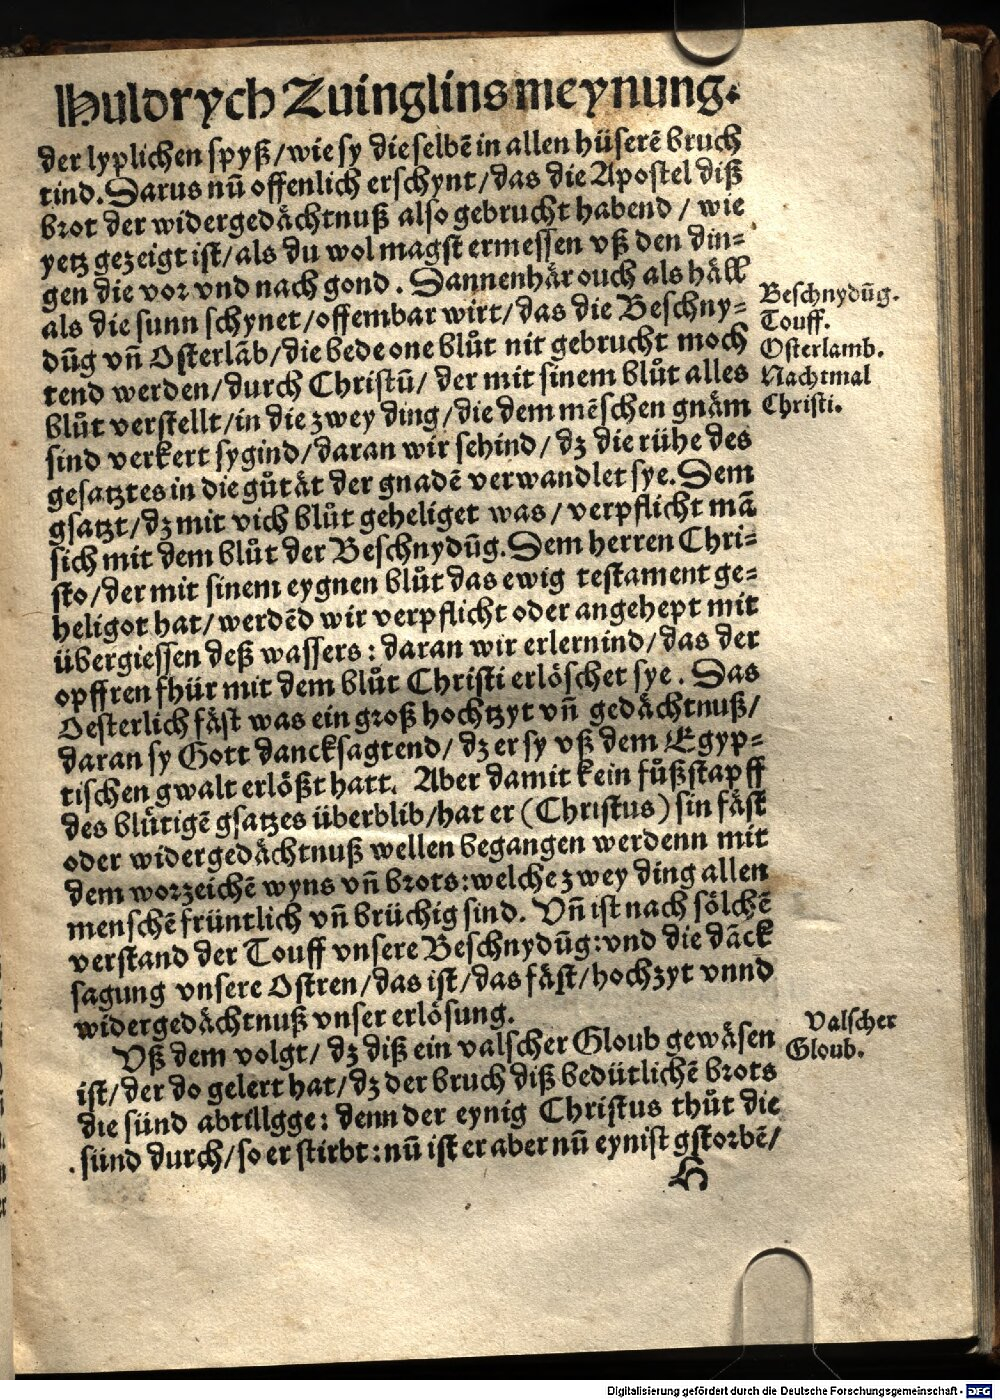 Huldrych Zuinglins meynung.
der lyplichen spyß/wie sy dieselbē in allen hüserē bruch
tind. Darus nū offenlich erschynt/das die Apostel diß
brot der widergedächtnuß also gebrucht habend / wie
yetz gezeigt ist/als du wol magst ermessen vß den din-
gen die vor vnd nach gond. Dannenhär ouch als häll
als die sunn schynet/offembar wirt/das die Beschny-
dūg vñ Osterlāb/die bede one blůt nit gebrucht moch
tend werden/durch Christū/ der mit sinem blůt alles
blůt verstellt/in die zwey ding/die dem mēschen gnäm
sind verkert sygind/daran wir sehind/dz die rühe des
gesatztes in die gůtät der gnadē verwandlet sye. Dem
gsatzt/dz mit vich blůt geheliget was/verpflicht mā
sich mit dem blůt der Beschnydūg. Dem herren Chri-
sto/der mit sinem eygnen blůt das ewig testament ge-
heligot hat/werdēd wir verpflicht oder angehept mit
übergiessen deß wassers: daran wir erlernind/das der
opffren fhür mit dem blůt Christi erlöschet sye. Das
Oesterlich fäst was ein groß hochtzyt vñ gedächtnuß/
daran sy Gott dancksagtend/dz er sy vß dem Egyp-
tischen gwalt erlößt hatt. Aber damit kein fůßstapff
des blůtigē gsatzes überblib/hat er (Christus) sin fäst
oder widergedächtnuß wellen begangen werdenn mit
dem worzeichē wyns vñ brots:welche zwey ding allen
menschē früntlich vñ brüchig sind. Vñ ist nach sölchē
verstand der Touff vnsere Beschnydūg:vnd die dāck
sagung vnsere Ostren/das ist/das fäst/hochzyt vnnd
widergedächtnuß vnser erlösung.
Vß dem volgt/ dz diß ein valscher Gloub gewäsen
ist/der do gelert hat/dz der bruch diß bedütlichē brots
die sünd abtillgge: denn der eynig Christus thůt die
sünd durch/so er stirbt:nū ist er aber nū eynist gstorbē/
H
Beschnydūg.
Touff.
Osterlamb.
Nachtmal
Christi.
Valscher
Gloub.
Digitalisierung gefördert durch die Deutsche Forschungsgemeinschaft - DFG